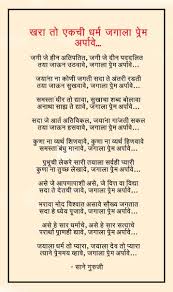 खरा तो एकची धर्म जगाला प्रेम
अर्पावे...
जगी जे हीन अतिपतित, जगी जे दीन पददलित
तया जाऊन उठवावे, जगाला प्रेम अर्पावे...
जयांना ना कोणी जगती सदा ते अंतरी रडती
तया जाऊन सुखवावे, जगाला प्रेम अर्पावे...
समस्तां धीर तो द्यावा, सुखाचा शब्द बोलावा
अनाथा साह्य ते द्यावे, जगाला प्रेम अर्पावे...
सदा जे आर्त अतिविकल, जयांना गांजती सकल
तया जाऊन हसवावे, जगाला प्रेम अर्पावे...
कुणा ना व्यर्थ शिणवावे, कुणा ना व्यर्थ हिणवावे
समस्तां बंधु मानावे, जगाला प्रेम अर्पावे...
प्रभूची लेकरे सारी तयाला सर्वही प्यारी
कुणा ना तुच्छ लेखावे, जगाला प्रेम अर्पावे...
असे जे आपणापाशी असे, जे वित्त वा विद्या
सदा ते देतची जावे, जगाला प्रेम अर्पावे...
भरावा मोद विश्वात असावे सौख्य जगतात
सदा हे ध्येय पूजावे, जगाला प्रेम अर्पावे...
असे हे सार धर्माचे, असे हे सार सत्याचे
परार्थी प्राणही द्यावे, जगाला प्रेम अर्पावे...
जयाला धर्म तो प्यारा, जयाला देव तो प्यारा
त्याने प्रेममय व्हावे, जगाला प्रेम अर्पावे...
- साने गुरुजी